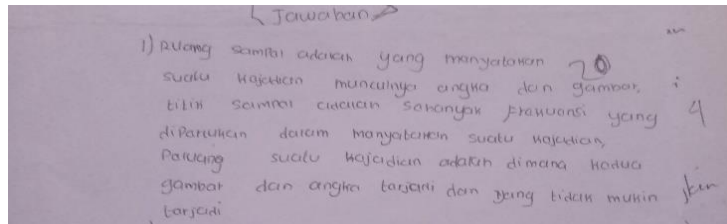 Jawaban
1) Ruang sampal adalah yang manyatakan 20
suatu Kajadian munculnya angka dan gambar,
titik sampal adalah sabanyak Frakuansi yang 4
diparlukan dalam manyatakan suatu Kajadian,
Paluang suatu Kajadian adalah dimana Kadua
gambar dan angka tarjadi dan yang tidak mukin
tarjadi